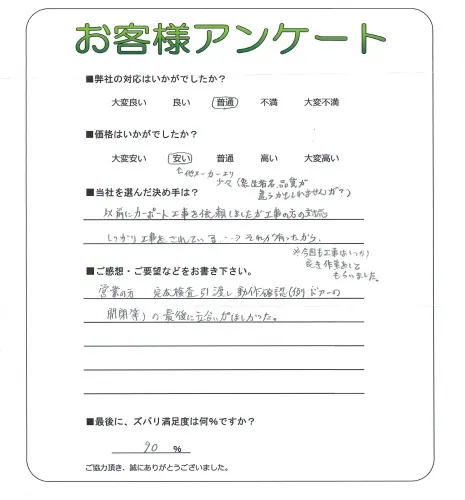 お客様アンケート
■弊社の対応はいかがでしたか？
大変良い 良い 普通 不満 大変不満
■価格はいかがでしたか？
大変安い 安い 普通 高い 大変高い
↑他メーカーより
少々(発注者名、品質が
違うかもしれませんが？)
■当社を選んだ決め手は？
以前にカーポート工事を依頼しましたが工事の方の対応
しっかり工事をされている…→それが有ったから、
※今回も工事はしっかり
完き作業をして
もらいました。
■ご感想・ご要望などをお書き下さい。
営業の方 完成検査引渡し動作確認(例ドアーの
開閉等)の最後に立合いがほしかった。
■最後に、ズバリ満足度は何％ですか？
90 ％
ご協力頂き、誠にありがとうございました。